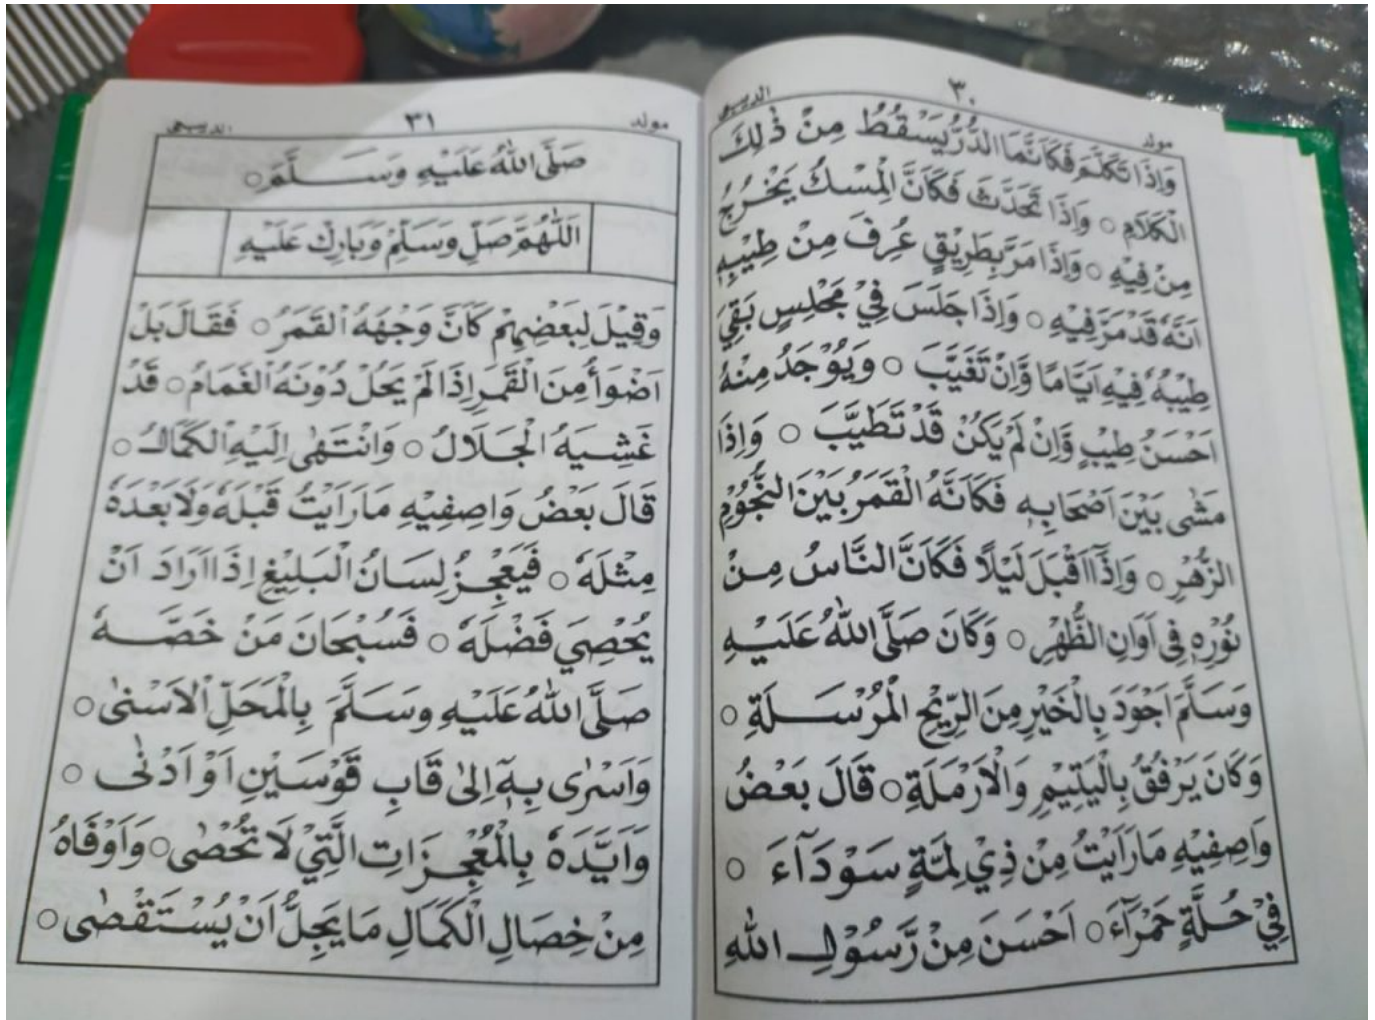 مولد ٣٠ الديبعي
وَاِذَا تَكَلَّمَ فَكَاَنَّمَا الدُّرُّ يَسْقُطُ مِنْ ذٰلِكَ
الْكَلَامِ ○ وَاِذَا تَحَدَّثَ فَكَانَّ الْمِسْكَ يَخْرُجُ
مِنْ فِيْهِ ○ وَاِذَا مَرَّ بِطَرِيْقٍ عُرِفَ مِنْ طِيْبِهٖ
اَنَّهٗ قَدْ مَرَّ فِيْهِ ○ وَاِذَا جَلَسَ فِيْ مَجْلِسٍ بَقِيَ
طِيْبُهٗ فِيْهِ اَيَّامًا وَّاِنْ تَغَيَّبَ ○ وَيُوْجَدُ مِنْهُ
اَحْسَنُ طِيْبٍ وَّاِنْ لَمْ يَكُنْ قَدْ تَطَيَّبَ ○ وَاِذَا
مَشٰى بَيْنَ اَصْحَابِهٖ فَكَاَنَّهُ الْقَمَرُ بَيْنَ النُّجُوْمِ
الزُّهْرِ ○ وَاِذَآ اَقْبَلَ لَيْلًا فَكَاَنَّ النَّاسُ مِنْ
نُوْرِهٖ فِى اَوَانِ الظُّهْرِ ○ وَكَانَ صَلَّى اللهُ عَلَيْهِ
وَسَلَّمَ اَجْوَدَ بِالْخَيْرِ مِنَ الرِّيْحِ الْمُرْسَلَةِ ○
وَكَانَ يَرْفُقُ بِالْيَتِيْمِ وَالْاَرْمَلَةِ ○ قَالَ بَعْضُ
وَاصِفِيْهِ مَارَاَيْتُ مِنْ ذِيْ لِمَّةٍ سَوْدَآءَ ○
فِيْ حُلَّةٍ حَمْرَآءَ ○ اَحْسَنَ مِنْ رَّسُوْلِ اللهِ
مولد ٣١ الديبعي
صَلَّى اللهُ عَلَيْهِ وَسَلَّمَ ○
اَللّٰهُمَّ صَلِّ وَسَلِّمْ وَبَارِكْ عَلَيْهِ
وَقِيْلَ لِبَعْضِهِمْ كَاَنَّ وَجْهَهُ الْقَمَرُ ○ فَقَالَ بَلْ
اَضْوَأُ مِنَ الْقَمَرِ اِذَا لَمْ يَحُلْ دُوْنَهُ الْغَمَامُ ○ قَدْ
غَشِيَهُ الْجَلَالُ ○ وَانْتَهٰى اِلَيْهِ الْكَمَالُ ○
قَالَ بَعْضُ وَاصِفِيْهِ مَارَاَيْتُ قَبْلَهٗ وَلَا بَعْدَهٗ
مِثْلَهٗ ○ فَيَعْجِزُ لِسَانُ الْبَلِيْغِ اِذَا اَرَادَ اَنْ
يُحْصِيَ فَضْلَهٗ ○ فَسُبْحَانَ مَنْ خَصَّهٗ
صَلَّى اللهُ عَلَيْهِ وَسَلَّمَ بِالْمَحَلِّ الْاَسْنٰى ○
وَاَسْرٰى بِهٖٓ اِلىٰ قَابِ قَوْسَيْنِ اَوْ اَدْنٰى ○
وَاَيَّدَهٗ بِالْمُعْجِزَاتِ الَّتِيْ لَا تُحْصٰى ○ وَاَوْفَاهُ
مِنْ خِصَالِ الْكَمَالِ مَا يَجِلُّ اَنْ يُسْتَقْصٰى ○